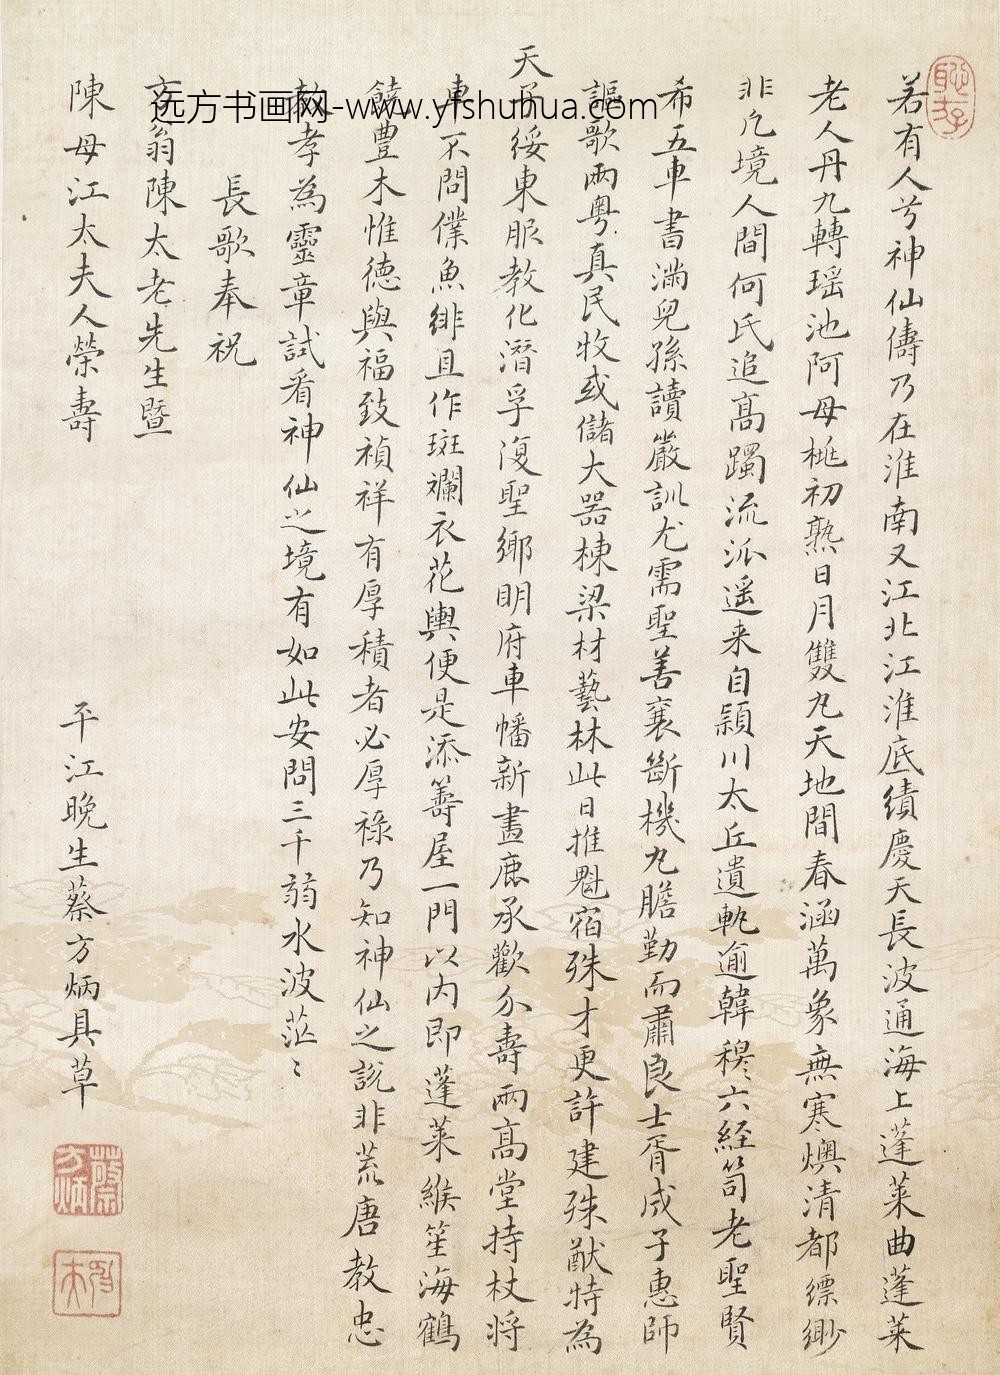 若有人兮神仙儔乃在淮南又江北江淮底績慶天長波通海上蓬萊曲蓬萊
老人丹九轉瑶池阿母桃初熟日月雙丸天地間春涵萬象無寒燠清都縹緲
非凡境人間何氏追高躅流派遥来自潁川太丘遺軌逾韓穆穆六經笥老聖賢
希五車書滿兒孫讀嚴訓尤需聖善襄斷機丸膽勤而肅良士胥成子惠師
謳歌兩粤真民牧或儲大器棟梁材藝林此日推魁宿殊才更許建殊猷特為
天子綏東服教化潛孚復聖鄉明府車幡新畫鹿承歡介壽兩高堂持杖將
車不問僕魚緋且作斑斕衣花輿便是添籌屋一門以内即蓬萊緱笙海鶴
饒豊木惟德與福致禎祥有厚積者必厚祿乃知神仙之說非荒唐教忠
教孝為靈章試看神仙之境有如此安問三千弱水波茫茫
長歌奉祝
翁陳太老先生暨
陳母江太夫人榮壽
平江晚生蔡方炳具草
远方书画网-www.yfshuhua.com
蔡方炳